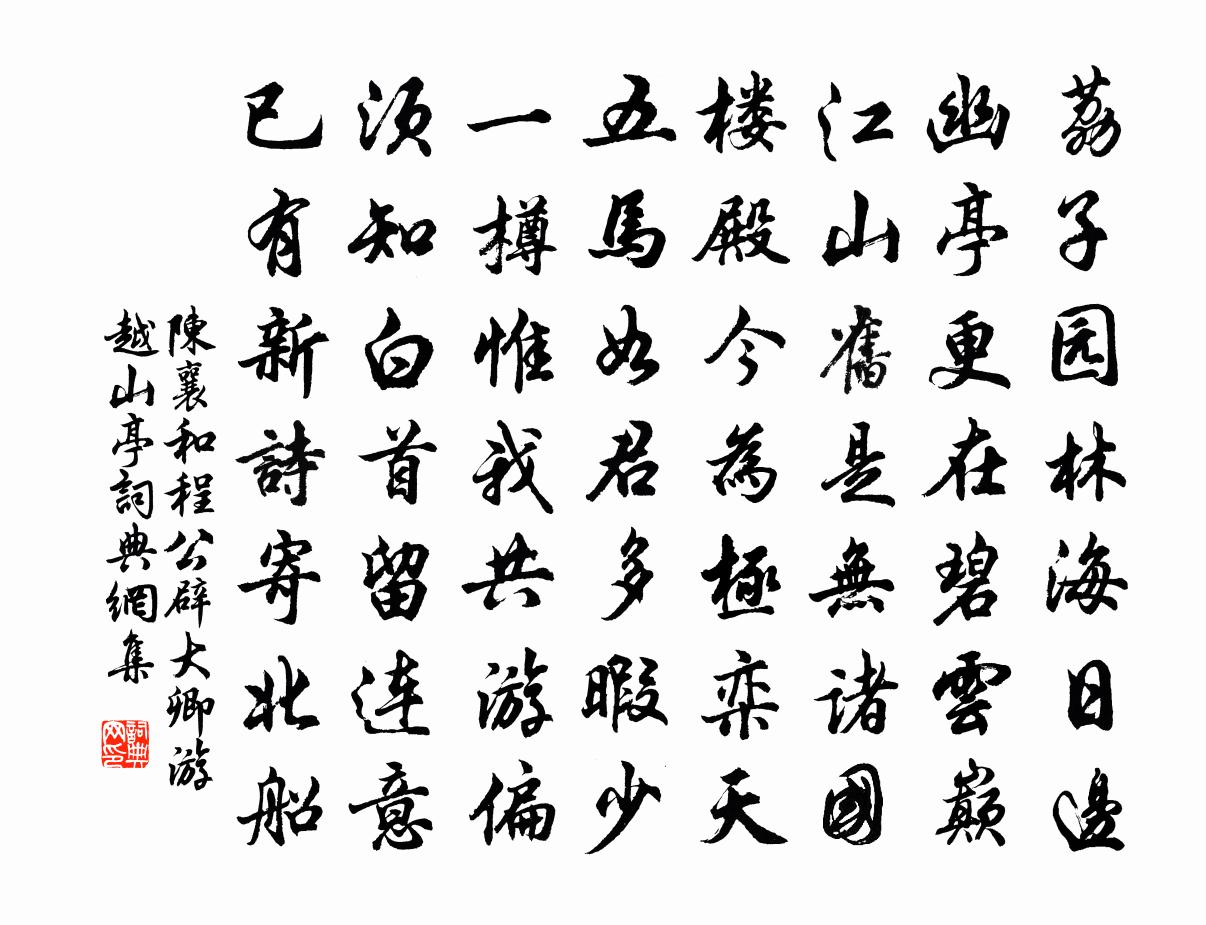 荔子园林海日邊
幽亭更在碧雲巔
江山舊是無諸國
楼殿今為極栾天
五馬如君多暇少
一樽惟我共游偏
須知白首留连意
已有新詩寄北船
陳襄和程公辟大卿游
越山亭詞典網集
詞典
网印